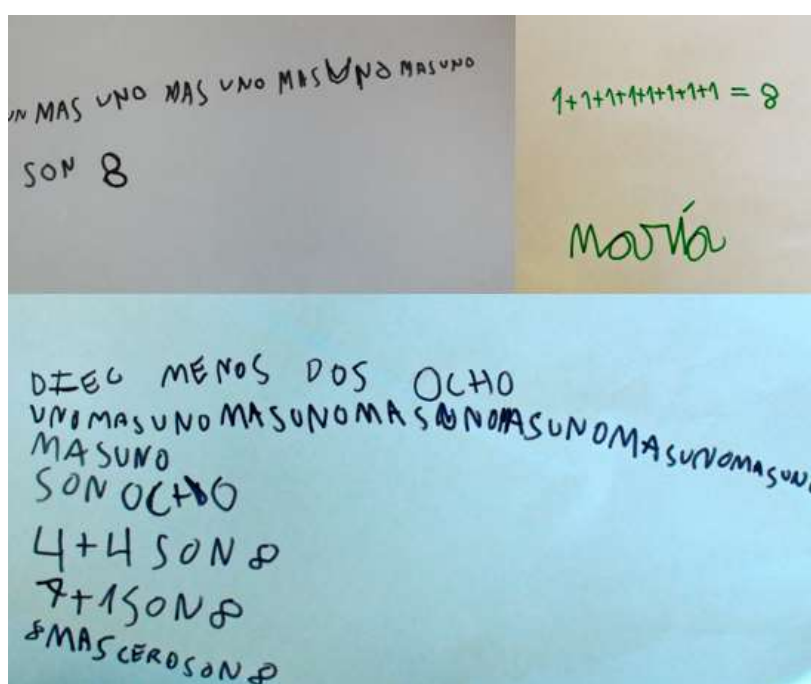 UN MAS UNO MAS UNO MAS UNO MASUNO
SON 8
1+1+1+1+1+1+1+1 = 8
María
DIEC MENOS DOS OCHO
UNOMASUNOMASUNOMASUNOMASUNOMASUNOMASUNO
MASUNO
SON OCHO
4+4 SON 8
7+1 SON 8
8 MAS CERO SON 8